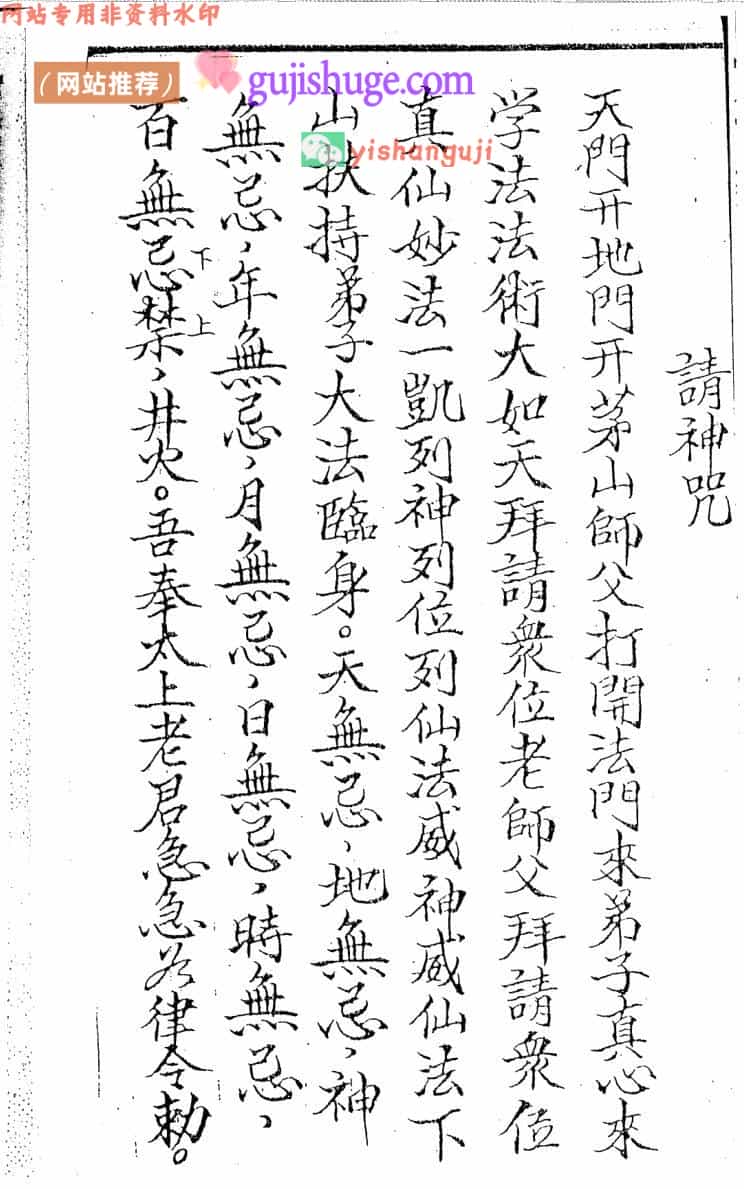 网站专用非资料水印
（网站推荐）
gujishuge.com
yishanguji
請神咒
天門开地門开茅山師父打開法門來弟子真心來
学法法術大如天拜請衆位老師父拜請衆位
真仙妙法一凱列神列位列仙法威神威仙法下
山扶持弟子大法臨身。天無忌、地無忌、神
無忌、年無忌、月無忌、日無忌、時無忌、
百無忌禁、井火。吾奉太上老君急急如律令勅。
下
上